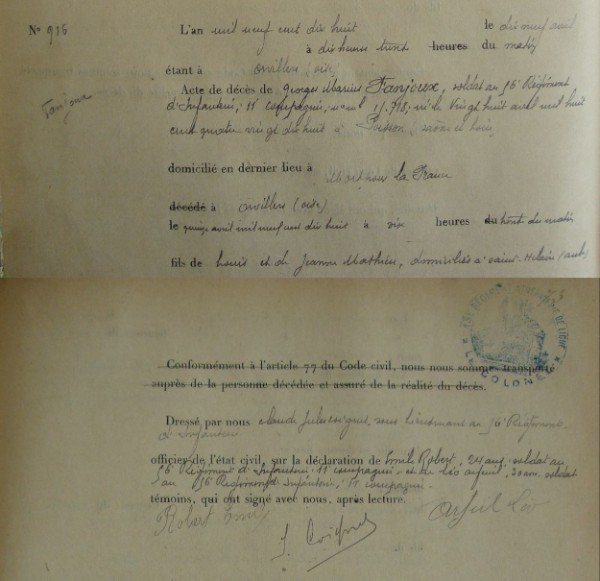 N° 916 L'an mil neuf cent dix huit le dix neuf avril
à dix heures trente heures du matin
étant à orvillers (oise)
Fanjoux
Acte de décès de georges Marius Fanjoux, soldat au 56e Régiment
d'Infanterie, 11e compagnie, né le vingt huit avril mil huit
cent quatre vingt dix huit à Poisson, saône et Loire
domicilié en dernier lieu à
Mort pour la France
décédé à orvillers (oise)
le quinze avril mil neuf cent dix huit à six heures du trente du matin
fils de Louis et de Jeanne Mathieu, domiciliés à saint
Conformément à l'article 77 du Code civil, nous nous sommes transporté
auprès de la personne décédée et assuré de la réalité du décès.
COLONEL
Dressé par nous claude Jules coignet, sous lieutenant au 56e Régiment
d'Infanterie
officier de l'état civil, sur la déclaration de Emile Robert, 24 ans, soldat au
56e Régiment d'Infanterie, 11e compagnie, et de Léo soldat
au 56e Régiment d'Infanterie, 11e compagnie.
témoins, qui ont signé avec nous, après lecture.
Robert Emile Léo
J. Coignet